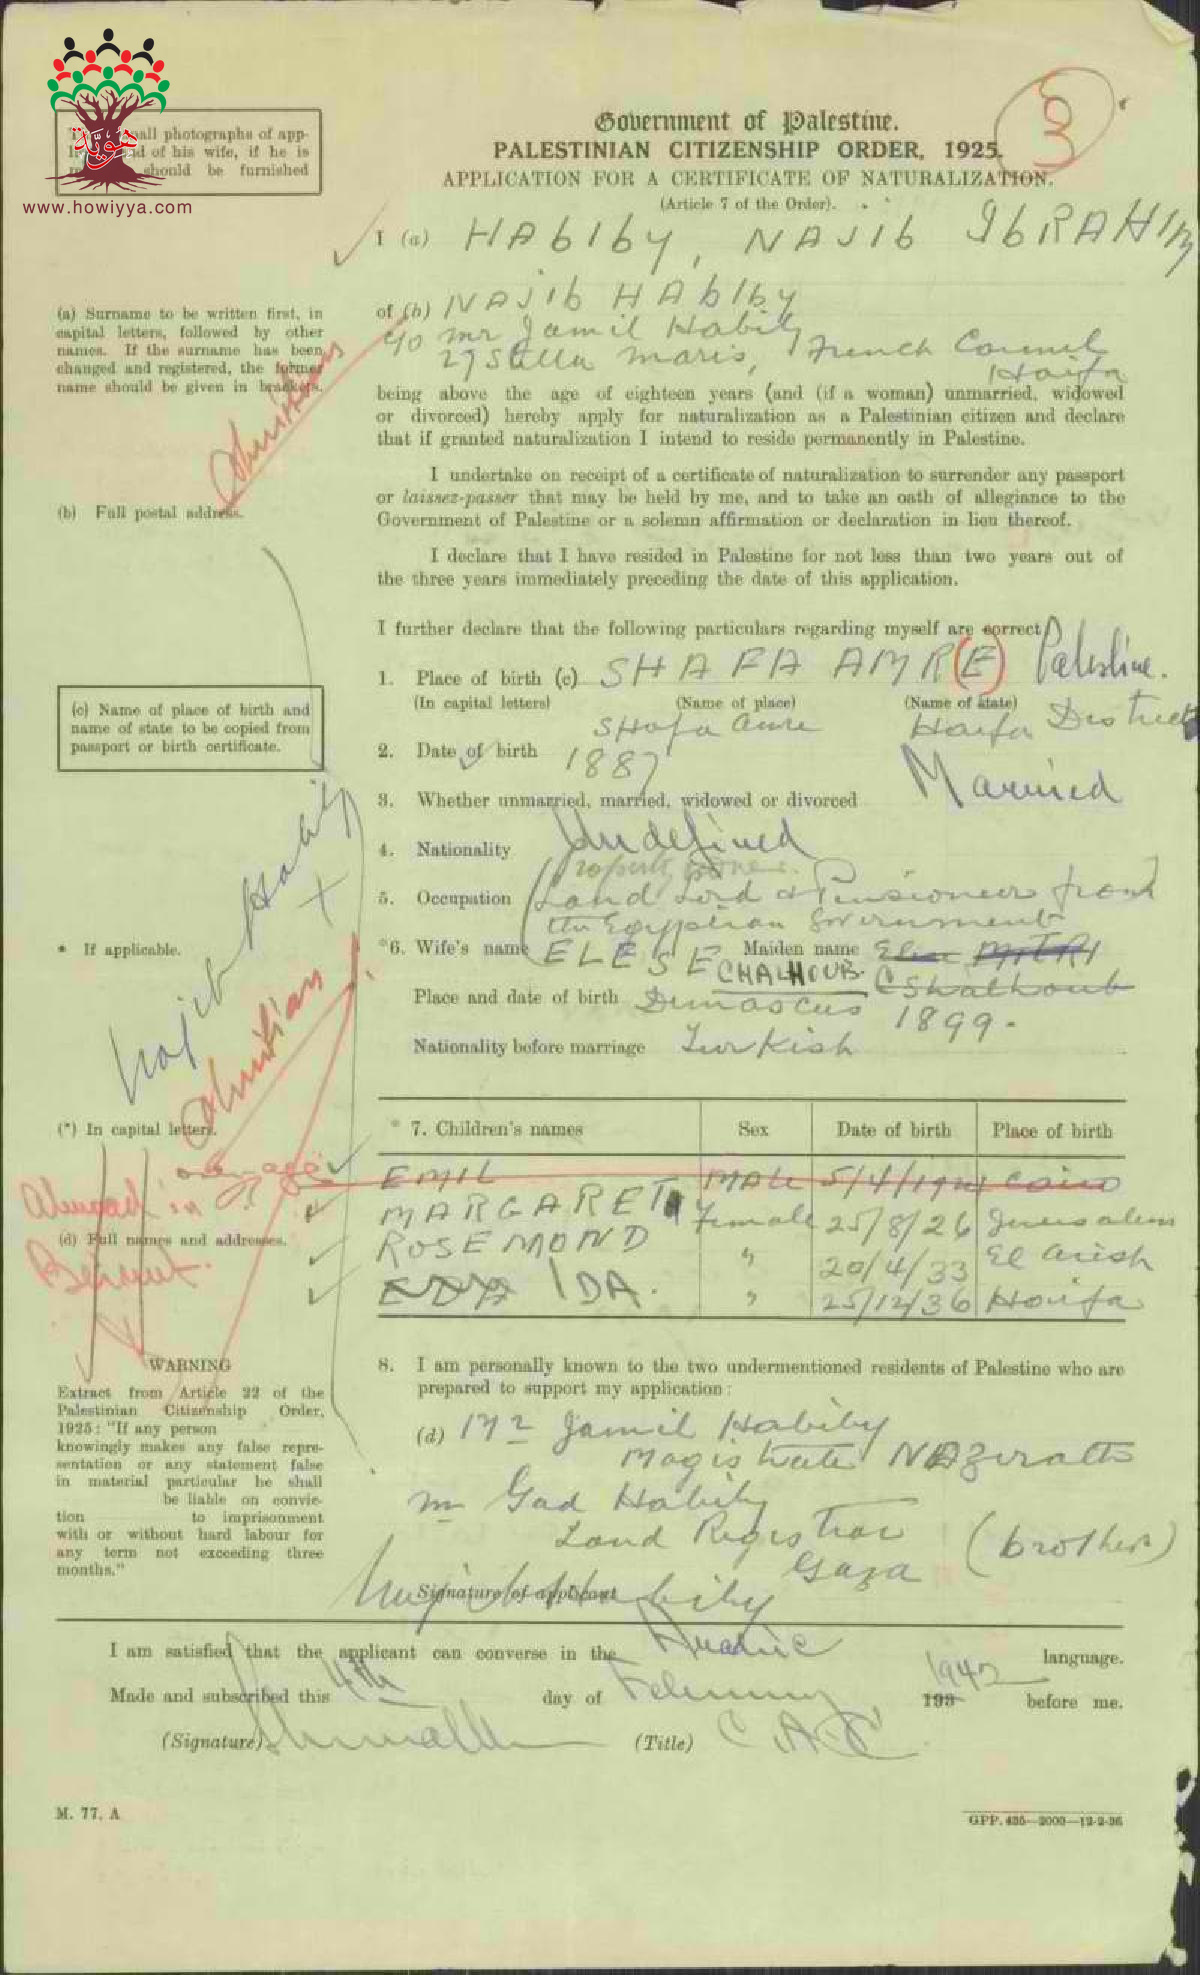 هوية
www.howiyya.com
all photographs of app-
of his wife, if he is
should be furnished
Government of Palestine.
PALESTINIAN CITIZENSHIP ORDER, 1925.
APPLICATION FOR A CERTIFICATE OF NATURALIZATION.
(Article 7 of the Order).
I (a) HABIBY, NAJIB IBRAHIM
(a) Surname to be written first, in
capital letters, followed by other
names. If the surname has been
changed and registered, the former
name should be given in brackets.
of (b) NAJIB HABIBY
c/o Mr Jamil Habiby
27 Stella Maris, French
Haifa
being above the age of eighteen years (and (if a woman) unmarried, widowed
or divorced) hereby apply for naturalization as a Palestinian citizen and declare
that if granted naturalization I intend to reside permanently in Palestine.
I undertake on receipt of a certificate of naturalization to surrender any passport
or laissez-passer that may be held by me, and to take an oath of allegiance to the
Government of Palestine or a solemn affirmation or declaration in lieu thereof.
(b) Full postal address.
I declare that I have resided in Palestine for not less than two years out of
the three years immediately preceding the date of this application.
I further declare that the following particulars regarding myself are correct
1. Place of birth (c) SHAFA AMR(E) Palestine.
(In capital letters) (Name of place) (Name of state)
Shafa Amre Haifa District
(c) Name of place of birth and
name of state to be copied from
passport or birth certificate.
2. Date of birth 1887
3. Whether unmarried, married, widowed or divorced Married
4. Nationality Undefined
property owner
5. Occupation Land Lord & Pensioneer from
the Egyptian Government
* If applicable.
*6. Wife's name ELESE Maiden name
CHALHOUB. Shalhoub
Place and date of birth Dimascus 1899.
Nationality before marriage Turkish
Najib Habiby
(*) In capital letters.
* 7. Children's names Sex Date of birth Place of birth
over age
EMIL MALE 5/4/1921 Cairo
MARGARET Female 25/8/26 Jerusalem
ROSEMOND " 20/4/33 El Arish
IDA. " 25/12/36 Haifa
in
Beirut.
(d) Full names and addresses.
8. I am personally known to the two undermentioned residents of Palestine who are
prepared to support my application:
(d) Mr Jamil Habiby
Magistrate Nazerath
Mr Gad Habiby
Land Registrar (brother)
Gaza
WARNING
Extract from Article 22 of the
Palestinian Citizenship Order,
1925: "If any person
knowingly makes any false repre-
sentation or any statement false
in material particular he shall
be liable on convic-
tion to imprisonment
with or without hard labour for
any term not exceeding three
months."
Signature of applicant
Najib Habiby
I am satisfied that the applicant can converse in the Arabic language.
Made and subscribed this 4th day of February 193 1942 before me.
(Signature) (Title)
M. 77. A
GPP. 435—2000—12-2-36